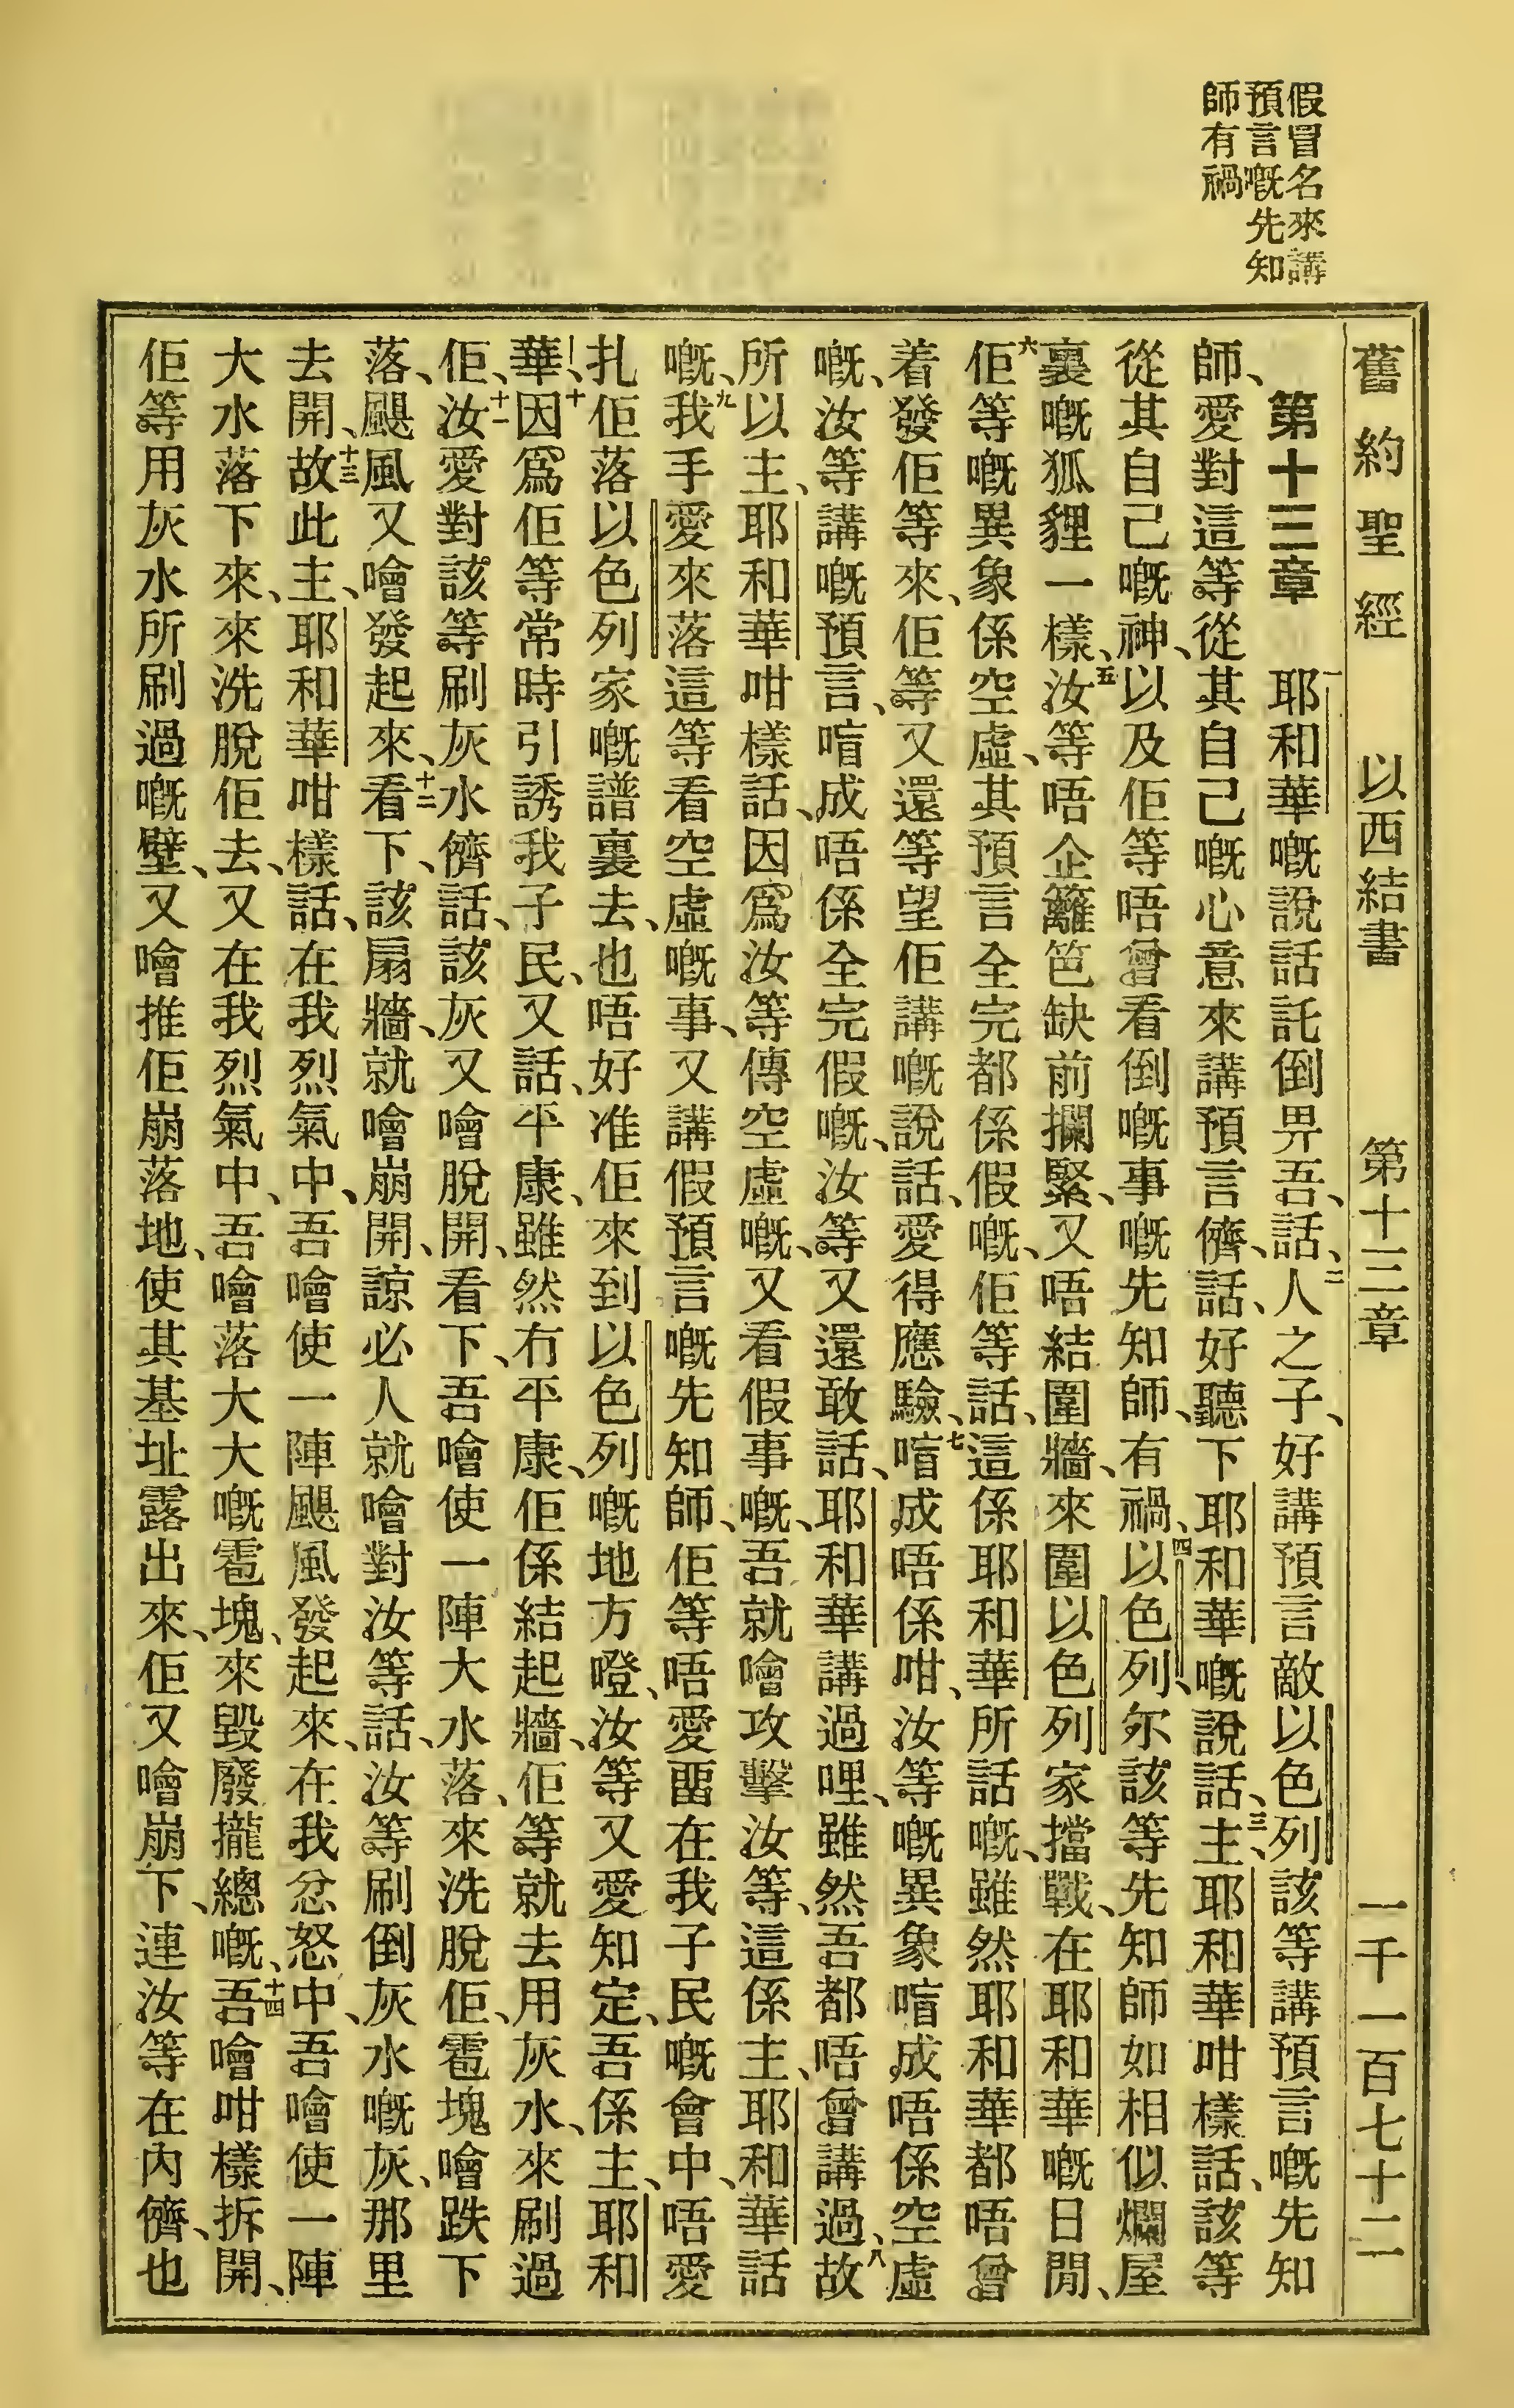 假冒名來講
預言嘅先知
師有禍
舊約聖經 以西結書 第十三章 一千一百七十二
第十三章 一耶和華嘅說話託倒畀吾、話、二人之子、好講預言敵以色列該等講預言嘅先知
師、愛對這等從其自己嘅心意來講預言儕、話、好聽下耶和華嘅說話、三主、耶和華咁樣話、該等
從其自己嘅神、以及佢等唔曾看倒嘅事嘅先知師、有禍、四以色列、尔該等先知師如相似爛屋
裏嘅狐狸一樣、五汝等唔企籬笆缺前攔緊、又唔結圍牆、來圍以色列家擋戰、在耶和華嘅日閒、
六佢等嘅異象係空虛、其預言全完都係假嘅、佢等話、這係耶和華所話嘅、雖然耶和華都唔曾
着發佢等來、佢等又還等望佢講嘅說話、愛得應驗、七喑成唔係咁、汝等嘅異象喑成唔係空虛
嘅、汝等講嘅預言、喑成唔係全完假嘅、汝等又還敢話、耶和華講過哩、雖然吾都唔曾講過、八故
所以主、耶和華咁樣話、因爲汝等傳空虛嘅、又看假事嘅、吾就噲攻擊汝等、這係主、耶和華話
嘅、九我手愛來落這等看空虛嘅事、又講假預言嘅先知師、佢等唔愛畱在我子民嘅會中、唔愛
扎佢落以色列家嘅譜裏去、也唔好准佢來到以色列嘅地方噔、汝等又愛知定、吾係主、耶和
華、十因爲佢等常時引誘我子民、又話、平康、雖然冇平康、佢係結起牆、佢等就去用灰水、來刷過
佢、十一汝愛對該等刷灰水儕話、該灰又噲脫開、看下、吾噲使一陣大水落、來洗脫佢、雹塊噲跌下
落、颶風又噲發起來、十二看下、該扇牆、就噲崩開、諒必人就噲對汝等話、汝等刷倒灰水嘅灰、那里
去開、十三故此主、耶和華咁樣話、在我烈氣中、吾噲使一陣颶風發起來、在我忿怒中、吾噲使一陣
大水落下來、來洗脫佢去、又在我烈氣中、吾噲落大大嘅雹塊、來毀廢攏總嘅、十四吾噲咁樣拆開、
佢等用灰水所刷過嘅壁、又噲推佢崩落地、使其基址露出來、佢又噲崩下、連汝等在內儕、也